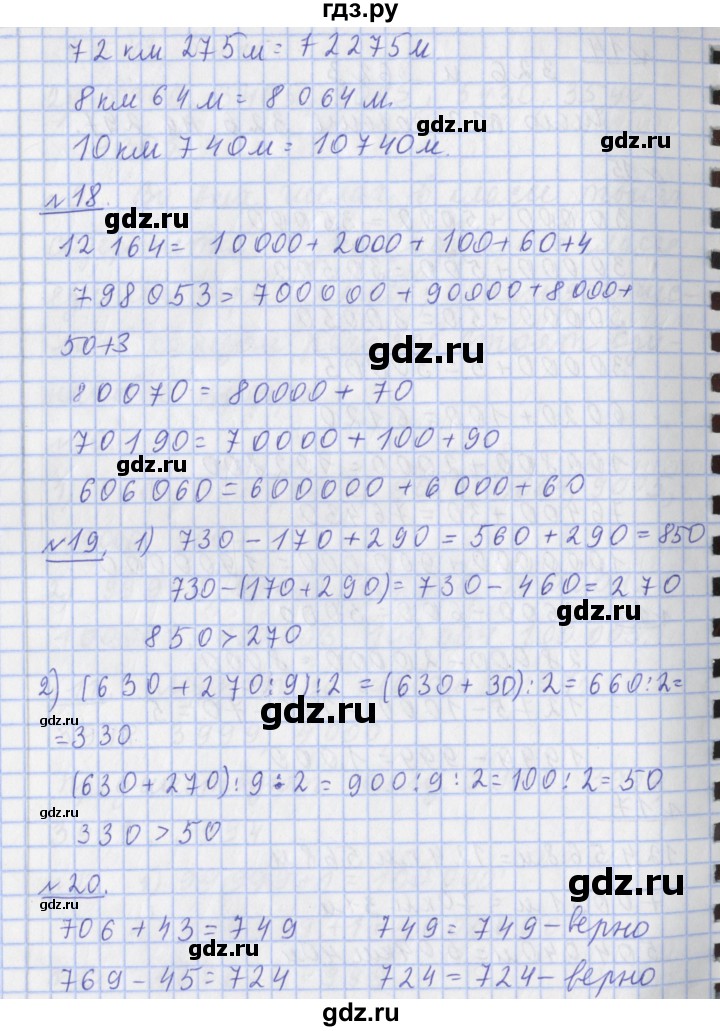 гдз.ру
72 км 275 м = 72275 м
8 км 64 м = 8 064 м.
gdz.ru
gdz.ru
10 км 740 м = 10740 м.
№18.
gdz.ru
12 164 = 10 000 + 2000 + 100 + 60 + 4
798 053 = 700 000 + 90000 + 8000 +
50+3
gdz.ru
80070 = 80000 + 70
70190 = 70000 + 100 + 90
gdz.ru
606 060 = 600000 + 6 000 + 60
№19. 1) 730 - 170 + 290 = 560 + 290 = 850
gdz.ru
730 - (170 + 290) = 730 - 460 = 270
gdz.ru
850 > 270
2) (630 + 270 : 9) : 2 = (630 + 30) : 2 = 660 : 2 =
gdz.ru
gdz.ru
= 330
(630 + 270) : 9 : 2 = 900 : 9 : 2 = 100 : 2 = 50
gdz.ru
330 > 50
№20.
gdz.ru
gdz.ru
706 + 43 = 749 749 = 749 - верно
gdz.ru
769 - 45 = 724 724 = 724 - верно
gdz.ru